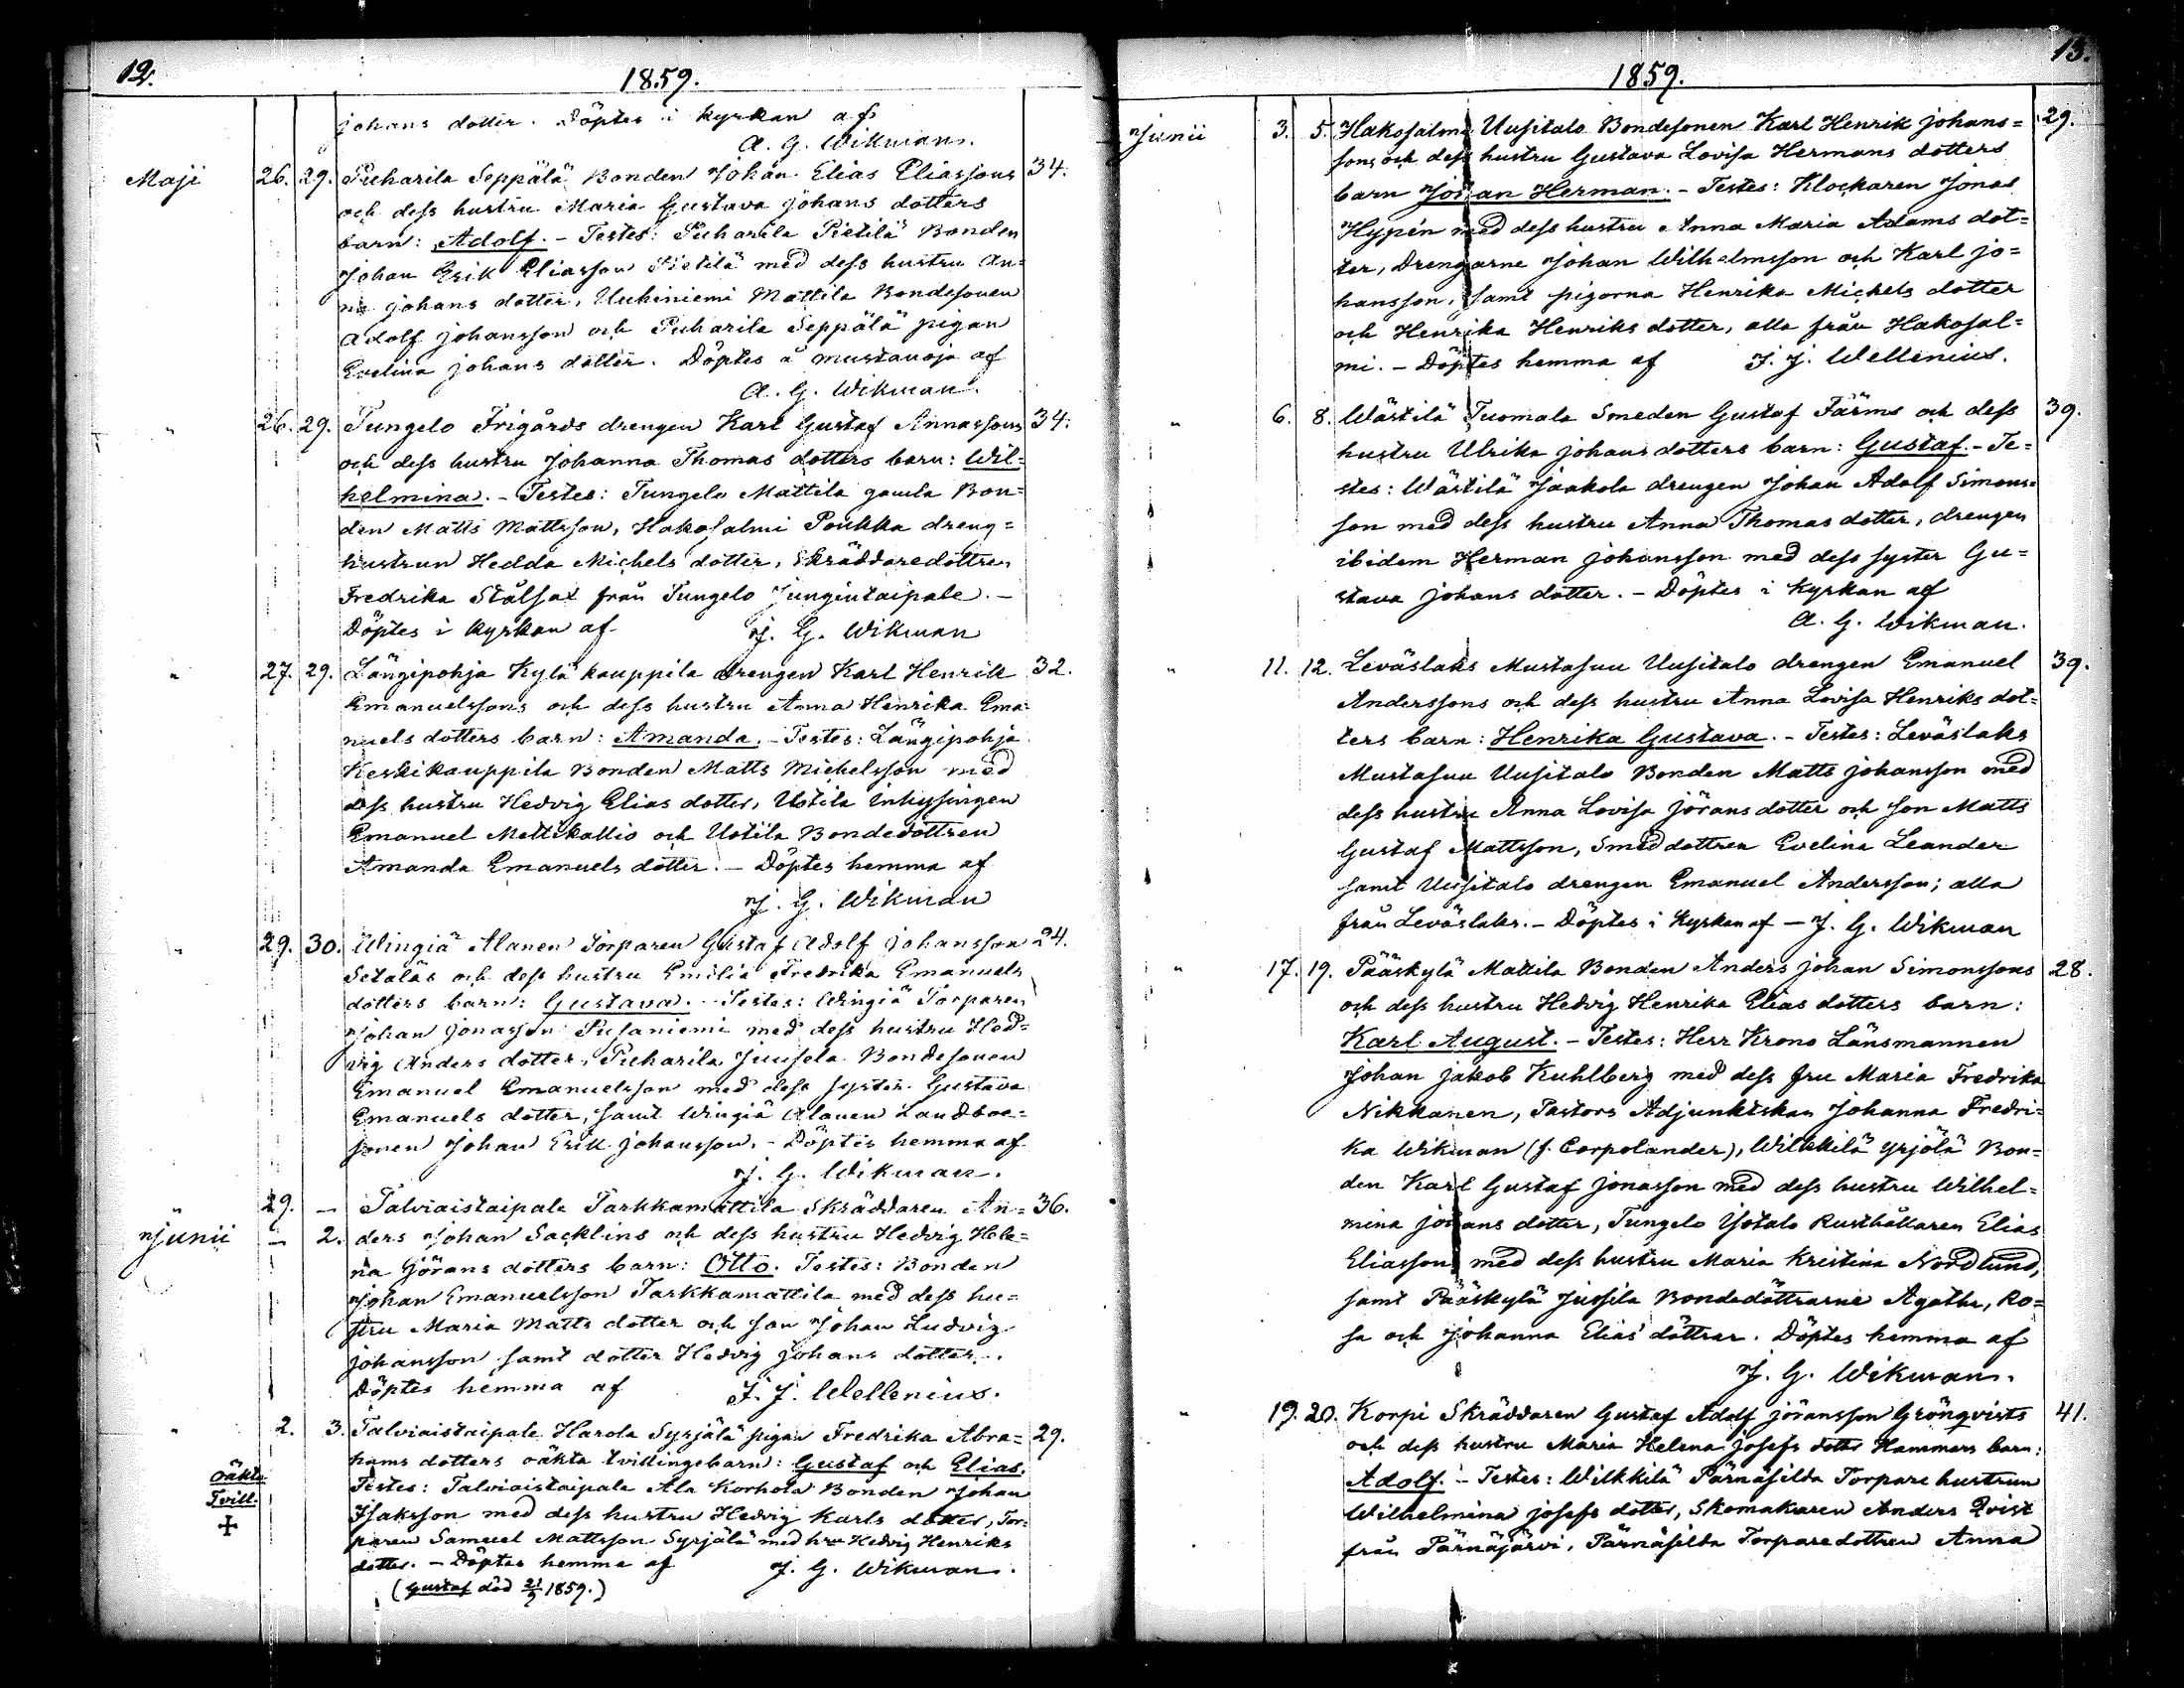 12.
1859.
johans dotter. Döptes i kyrkan af
A. G. Wikman.
Maji 26. 29. Puharila Seppälä Bonden Johan Elias Eliassons 34.
och dess hustru Maria Gustava Johans dotters
barn: Adolf. - Testes: Puharila Pietilä Bonden
Johan Erik Eliasson Pietilä med dess hustru An-
na johans dotter, Uuhiniemi Mattila Bondesonen
Adolf johansson och Puharila Seppälä pigan
Evelina johans dotter. Döptes å Mustanoja af
A. G. Wikman.
" 26. 29. Tungelo Frigårds drengen Karl Gustaf Annassons 34.
och dess hustru Johanna Thomas dotters barn: Wil=
helmina. - Testes: Tungelo Mattila gamla Bon=
den Matts Mattsson, Hakosalmi Poukka dreng=
hustrun Hedda Michels dotter, Skräddaredottren
Fredrika Stålsax från Tungelo Jungintaipale. -
Döptes i kyrkan af J. G. Wikman
" 27. 29. Längipohja Kylä kauppila drengen Karl Henrik 32.
Emanuelssons och dess hustru Anna Henrika Ema-
nuels dotters barn: Amanda. - Testes: Längipohja
Keskikauppila Bonden Matts Michelsson med
dess hustru Hedvig Elias dotter, Uotila Inhysingen
Emanuel Mattikallio och Uotila Bondedottren
Amanda Emanuels dotter. - Döptes hemma af
J. G. Wikman
" 29. 30. Wingiä Alanen Torparen Gustaf Adolf Johansson 24.
Setäläs och dess hustru Emilia Fredrika Emanuels
dotters barn: Gustava. - Testes: Wingiä Torparen
Johan Jonasson Pusaniemi med dess hustru Hed=
vig Anders dotter, Puharila Juusela Bondesonen
Emanuel Emanuelsson med dess syster Gustava
Emanuels dotter, samt Wingiä Alanen Landboe=
sonen Johan Erik Johansson. - Döptes hemma af
J. G. Wikman.
29. - Talviaistaipale Tarkkamattila Skräddaren An= 36.
Junii - 2. ders Johan Sacklins och dess hustru Hedvig Hele=
na Görans dotters barn: Otto. Testes: Bonden
Johan Emanuelsson Tarkkamattila med dess hu=
stru Maria Matts dotter och son Johan Ludvig
Johansson samt dotter Hedvig Johans dotter.
Döptes hemma af F. J. Wellenius.
" 2. 3. Talviaistaipale Harola Syrjälä pigan Fredrika Abra= 29.
hams dotters oäkta tvillingebarn: Gustaf och Elias.
oäkta
Tvill.
Testes: Talviaistaipale Ala Korhola Bonden Johan
Isaksson med dess hustru Hedvig Karls dotter, Tor=
paren Samuel Mattsson Syrjälä med hru Hedvig Henriks
dotter. - Döptes hemma af J. G. Wikman.
(Gustaf död 21/9 1859.)
13.
1859.
Junii 3. 5. Hakosalmi Uusitalo Bondesonen Karl Henrik Johans= 29.
sons och dess hustru Gustava Lovisa Hermans dotters
barn Johan Herman. - Testes: Klockaren Jonas
Hypén med dess hustru Anna Maria Adams dot=
ter, Drengarne Johan Wilhelmsson och Karl Jo=
hansson, samt pigorna Henrika Michels dotter
och Henrika Henriks dotter, alla från Hakosal=
mi. - Döptes hemma af F. J. Wellenius.
" 6. 8. Wästilä Tuomala Smeden Gustaf Färms och dess 39.
hustru Ulrika johans dotters barn: Gustaf. - Te=
stes: Wästilä Jaakola drengen Johan Adolf Simons=
son med dess hustru Anna Thomas dotter, drengen
ibidem Herman Johansson med dess syster Gu=
stava Johans dotter. - Döptes i Kyrkan af
A. G. Wikman.
" 11. 12. Leväslaks Mustasuu Uusitalo drengen Emanuel 39.
Anderssons och dess hustru Anna Lovisa Henriks dot=
ters barn: Henrika Gustava. - Testes: Leväslaks
Mustasuu Uusitalo Bonden Matts Johansson med
dess hustru Anna Lovisa Jörans dotter och son Matts
Gustaf Mattsson, Smeddottren Evelina Leander
samt Uusitalo drengen Emanuel Andersson; alla
från Leväslaks. - Döptes i Kyrkan af - J. G. Wikman
" 17. 19. Pääskylä Mattila Bonden Anders Johan Simonssons 28.
och dess hustru Hedvig Henrika Elias dotters barn:
Karl August. - Testes: Herr Krono Länsmannen
Johan Jakob Kuhlberg med dess fru Maria Fredrika
Nikkanen, Pastors Adjunktskan Johanna Fredri=
ka Wikman (f. Corpolander), Wilkkilä Yrjölä Bon=
den Karl Gustaf Jonasson med dess hustru Wilhel=
mina Johans dotter, Tungelo Ylötalo Rusthållaren Elias
Eliasson med dess hustru Maria Kristina Nordlund,
samt Pääskylä Jussila Bondedöttrarne Agatha, Ro=
sa och Johanna Elias döttrar. Döptes hemma af
J. G. Wikman.
" 19. 20. Korpi Skräddaren Gustaf Adolf Jöransson Grönqvists 41.
och dess hustru Maria Helena Josefs dotter Hammars barn:
Adolf. - Testes: Wilkkilä Pärnäsilda Torpare hustrun
Wilhelmina Josefs dotter, Skomakaren Anders Qvist
från Pärnäjärvi, Pärnäsilda Torparedottren Anna